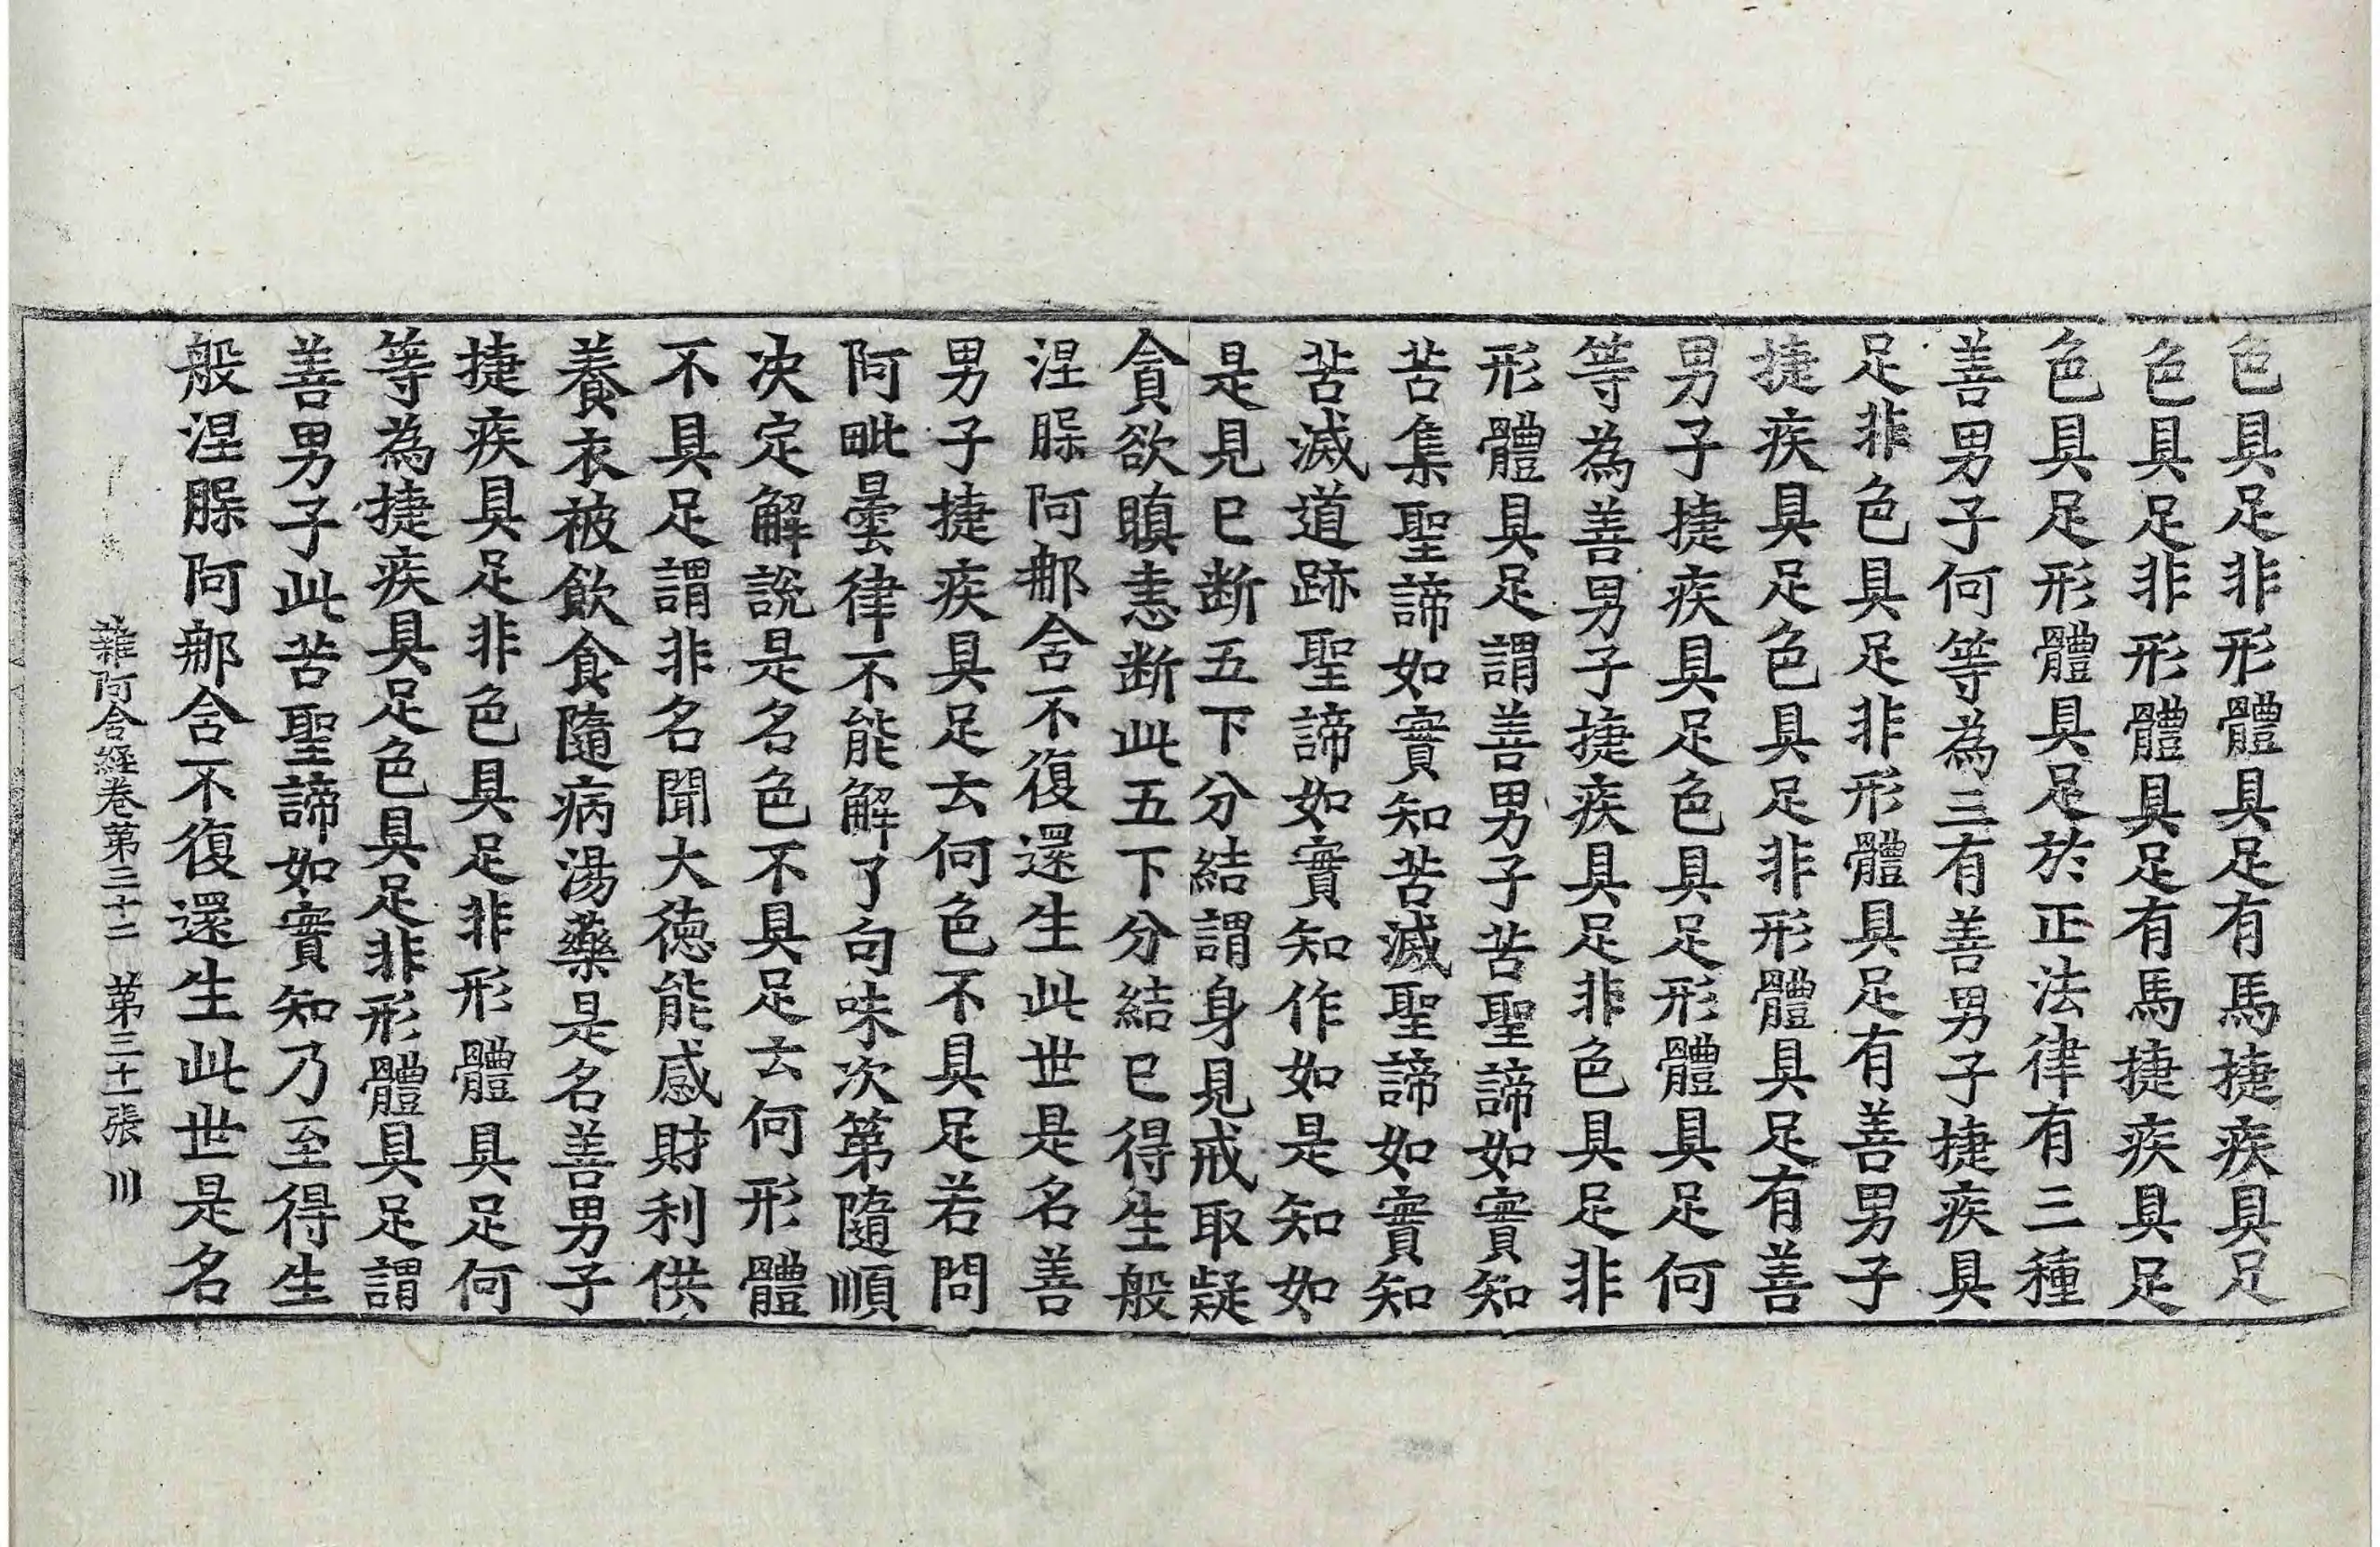 色具足非形體具足有馬捷疾具足
色具足非形體具足有馬捷疾具足
色具足形體具足於正法律有三種
善男子何等為三有善男子捷疾具
足非色具足非形體具足有善男子
捷疾具足色具足非形體具足有善
男子捷疾具足色具足形體具足何
等為善男子捷疾具足非色具足非
形體具足謂善男子苦聖諦如實知
苦集聖諦如實知苦滅聖諦如實知
苦滅道跡聖諦如實知作如是知如
是見已断五下分結謂身見戒取疑
貪欲瞋恚断此五下分結已得生般
涅槃阿那含不復還生此世是名善
男子捷疾具足云何色不具足若問
阿毗曇律不能解了句味次第隨順
决定解說是名色不具足云何形體
不具足謂非名聞大徳能感財利供
養衣被飲食隨病湯藥是名善男子
捷疾具足非色具足非形體具足何
等為捷疾具足色具足非形體具足謂
善男子此苦聖諦如實知乃至得生
般涅槃阿那含不復還生此世是名
雜阿含経卷第三十三 第三十一張 川